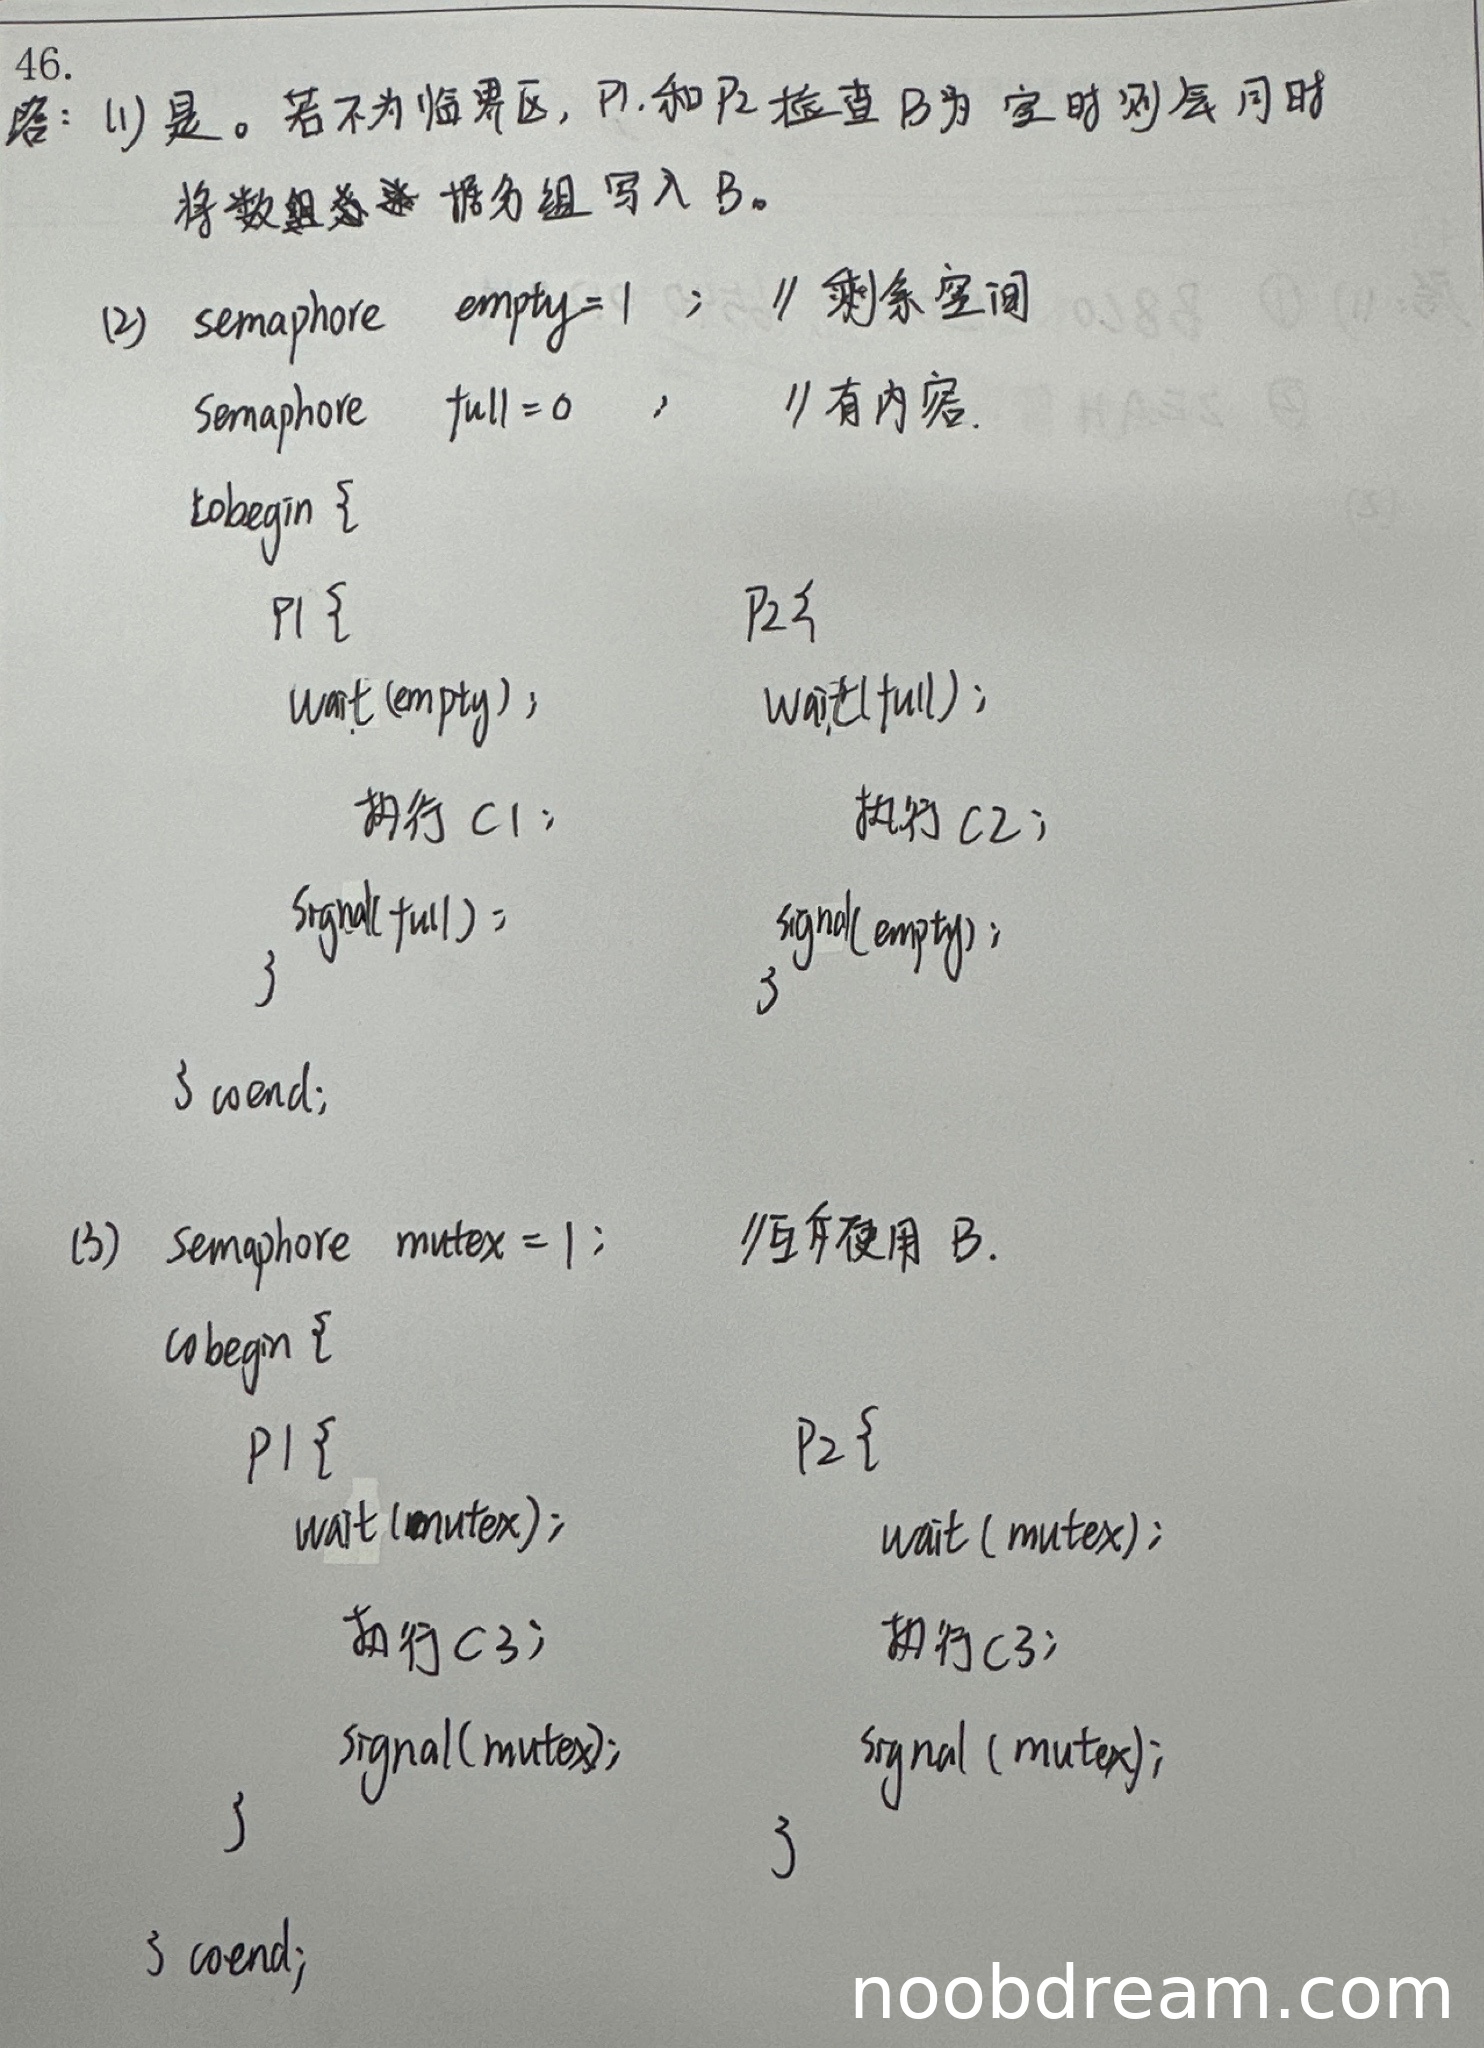 46.
答：(1) 是。若不为临界区，P1.和P2检查B为空时则会同时
将数据分组写入B。
(2) semaphore empty=1 ; // 剩余空间
semaphore full=0 ; // 有内容.
cobegin {
P1 { P2 {
wait(empty); wait(full);
执行 C1; 执行 C2;
signal(full); signal(empty);
} }
} coend;
(3) semaphore mutex = 1; //互斥使用 B.
cobegin {
P1 { P2 {
wait(mutex); wait(mutex);
执行C3; 执行C3;
signal(mutex); signal(mutex);
} }
} coend;
noobdream.com